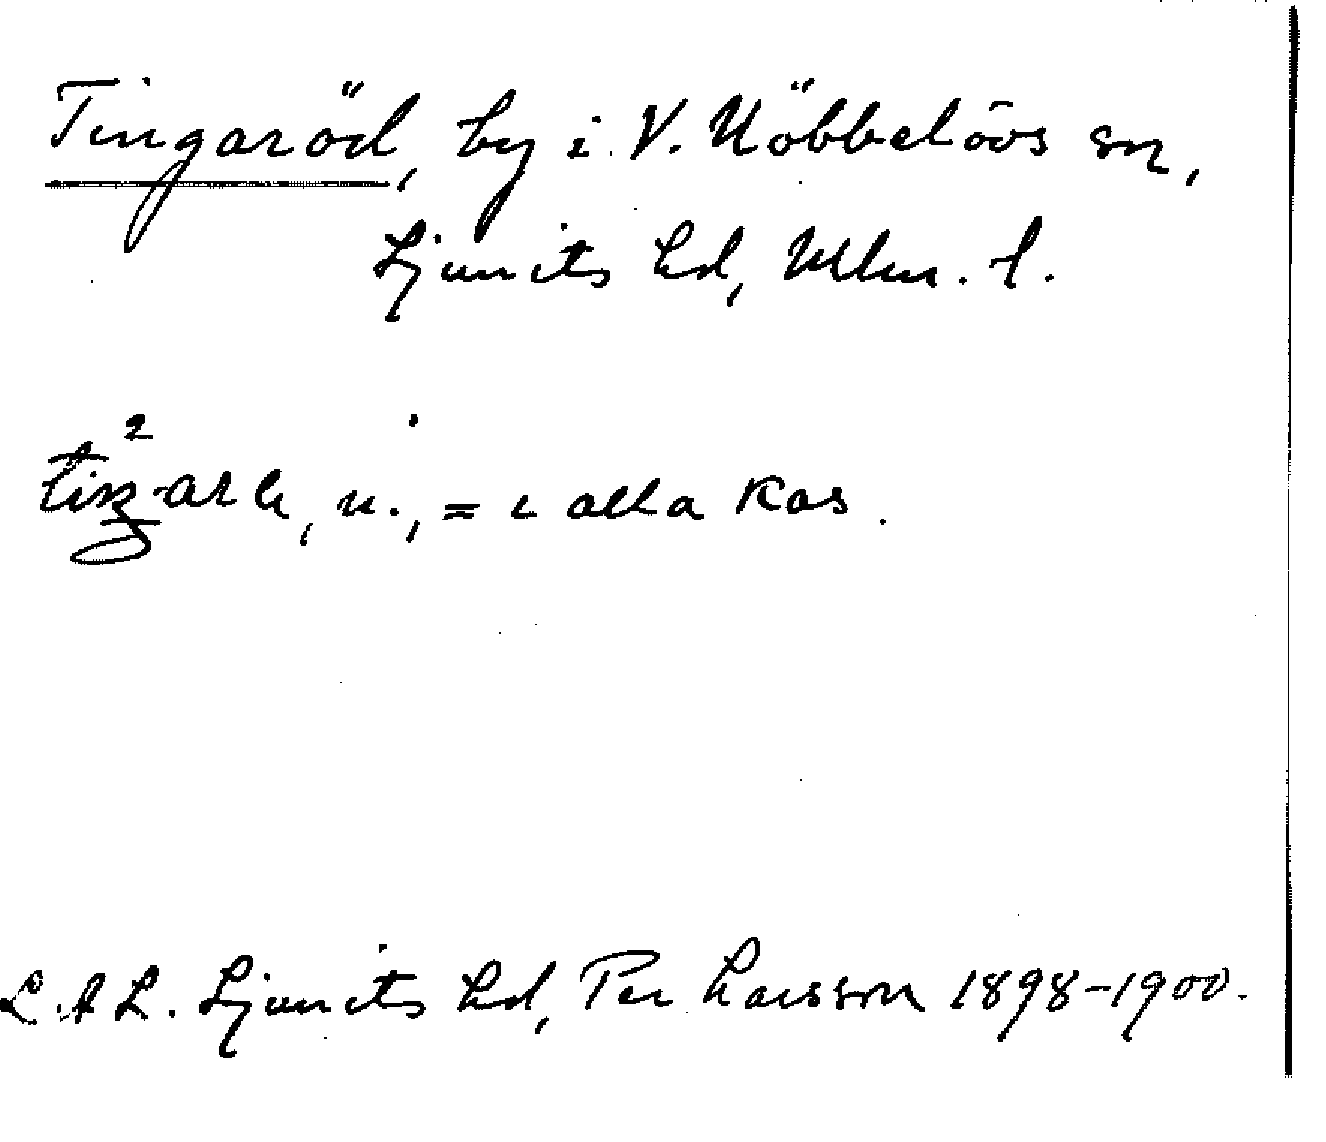 Tingaröd, by i V. Nöbbelövs sn,
Ljunits hd, Mlm. l.
n., = i alla kas.
L.A.L. Ljunits hd, Per Larsson 1898-1900.